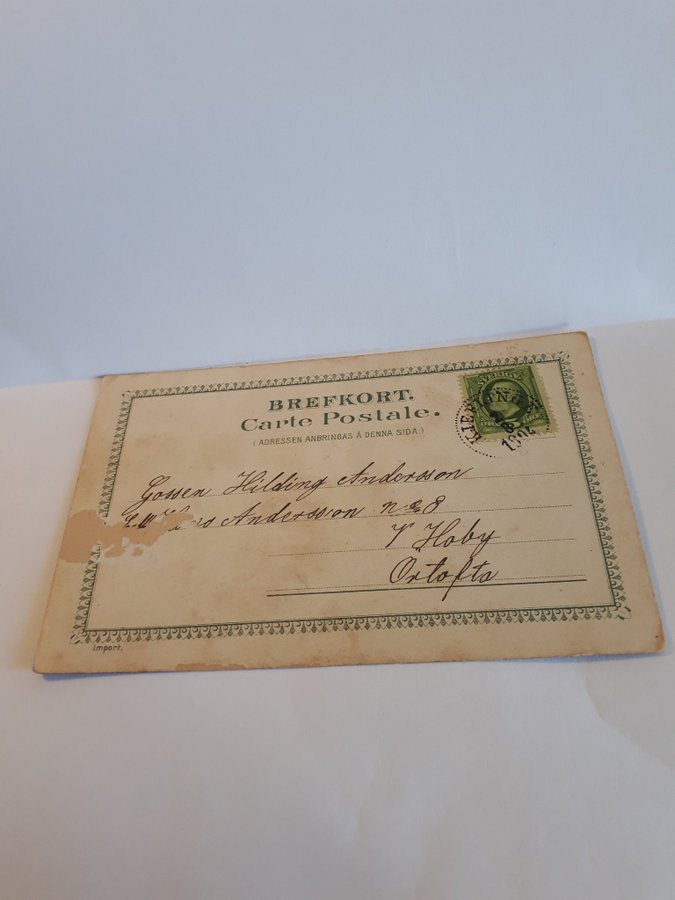 BREFKORT.
Carte Postale.
(ADRESSEN ANBRINGAS Å DENNA SIDA.)
SVERIGE
Gossen Hilding Andersson
Andersson n:o 8
V Hoby
Örtofta
Import.